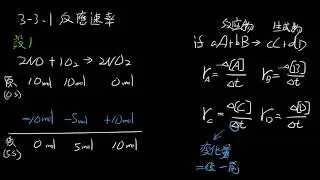 3-3-1 反應速率
設1
2NO + 1O₂ → 2NO₂
原 10mol 10mol 0mol
(0s)
-10mol -5mol +10mol
後 0mol 5mol 10mol
(5s)
反应物 生成物
设 aA+bB → cC+dD
r_A = -Δ[A]/Δt r_B = -Δ[B]/Δt
r_C = Δ[C]/Δt r_D = Δ[D]/Δt
变化量
=後-前